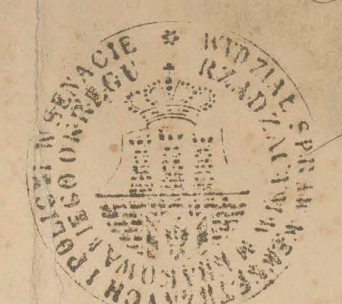 WYDZIAŁ SPRAW WEWNĘTRZNYCH I POLICYI W SENACIE
RZĄDZĄCYM W. M. KRAKOWA I JEGO OKRĘGU